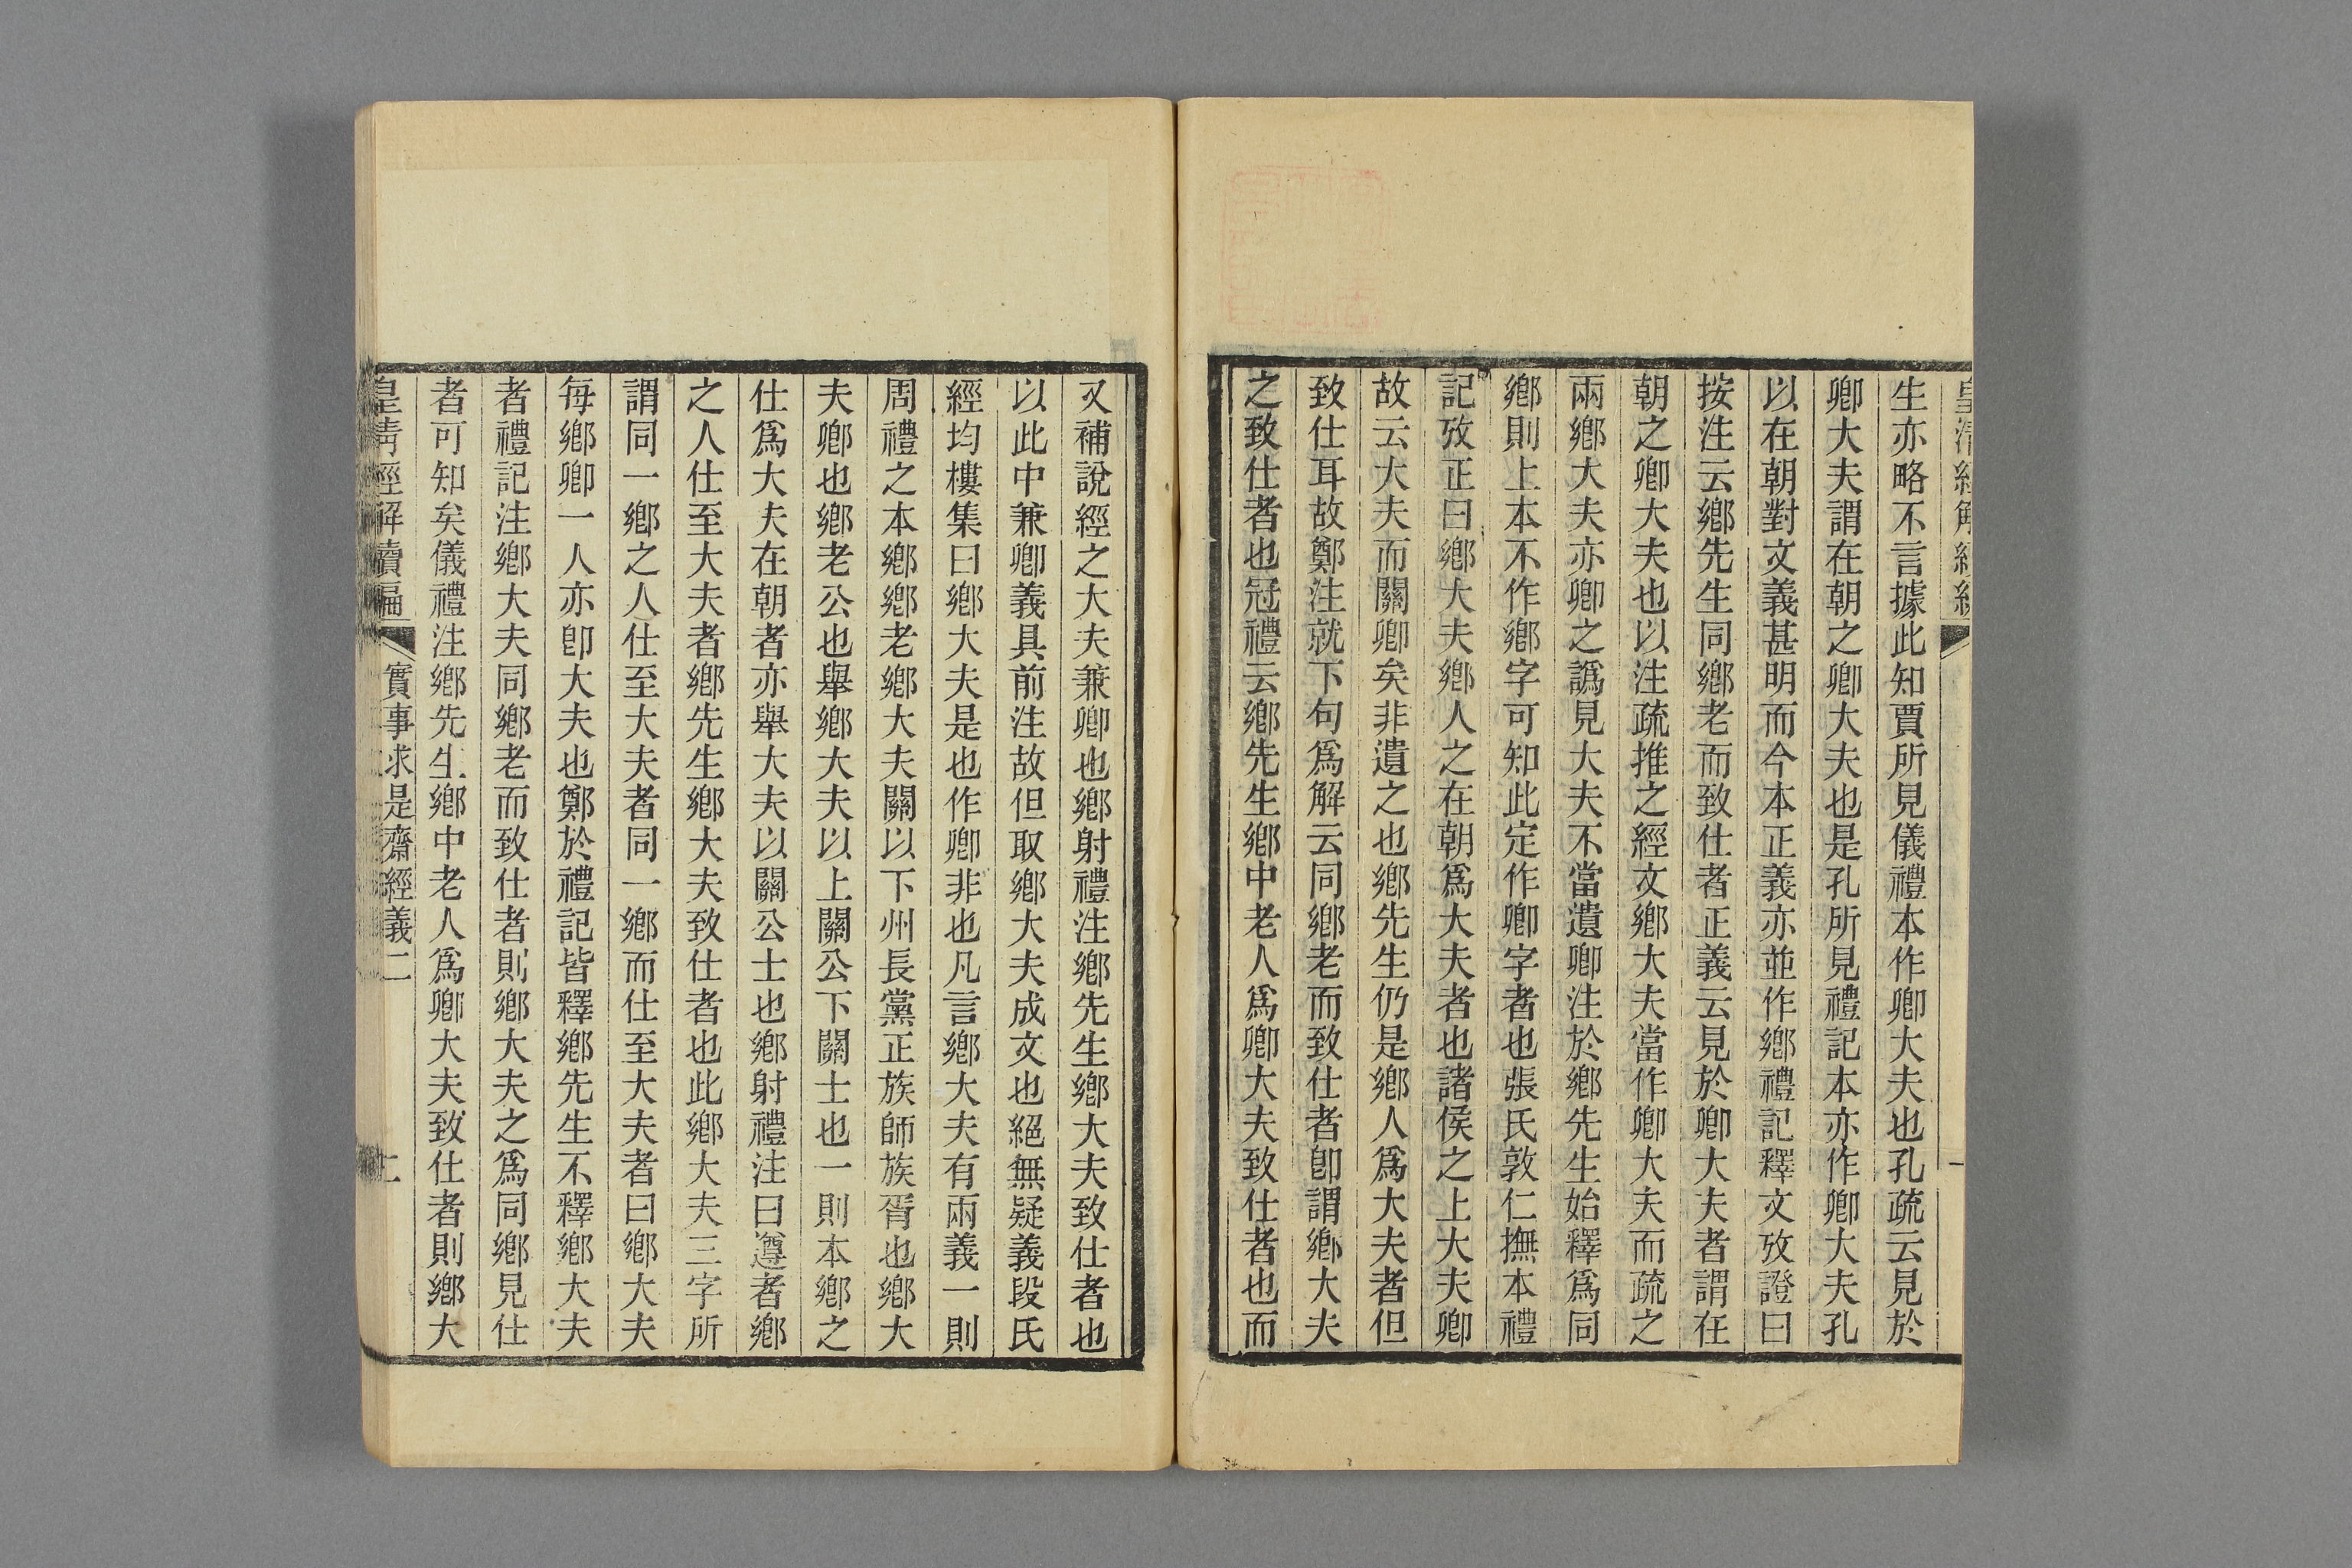 皇清經解續編
生亦略不言據此知賈所見儀禮本作卿大夫也孔疏云見於
卿大夫謂在朝之卿大夫也是孔所見禮記本亦作卿大夫孔
以在朝對文義甚明而今本正義亦並作鄉禮記釋文攷證曰
按注云鄉先生同鄉老而致仕者正義云見於卿大夫者謂在
朝之卿大夫也以注疏推之經文鄉大夫當作卿大夫而疏之
兩鄉大夫亦卿之譌見大夫不當遺卿注於鄉先生始釋爲同
鄉則上本不作鄉字可知此定作卿字者也張氏敦仁撫本禮
記攷正曰鄉大夫鄉人之在朝爲大夫者也諸侯之上大夫卿
故云大夫而關卿矣非遺之也鄉先生仍是鄉人爲大夫者但
致仕耳故鄭注就下句爲解云同鄉老而致仕者卽謂鄉大夫
之致仕者也冠禮云鄉先生鄉中老人爲卿大夫致仕者也而
又補說經之大夫兼卿也鄉射禮注鄉先生鄉大夫致仕者也
以此中兼卿義具前注故但取鄉大夫成文也絕無疑義段氏
經均樓集曰鄉大夫是也作卿非也凡言鄉大夫有兩義一則
周禮之本鄉鄉老鄉大夫關以下州長黨正族師族胥也鄉大
夫卿也鄉老公也舉鄉大夫以上關公下關士也一則本鄉之
仕爲大夫在朝者亦舉大夫以關公士也鄉射禮注曰遵者鄉
之人仕至大夫者鄉先生鄉大夫致仕者也此鄉大夫三字所
謂同一鄉之人仕至大夫者同一鄉而仕至大夫者曰鄉大夫
每鄉卿一人亦卽大夫也鄭於禮記皆釋鄉先生不釋鄉大夫
者禮記注鄉大夫同鄉老而致仕者則鄉大夫之爲同鄉見仕
者可知矣儀禮注鄉先生鄉中老人爲卿大夫致仕者則鄉大
皇清經解續編 實事求是齋經義二